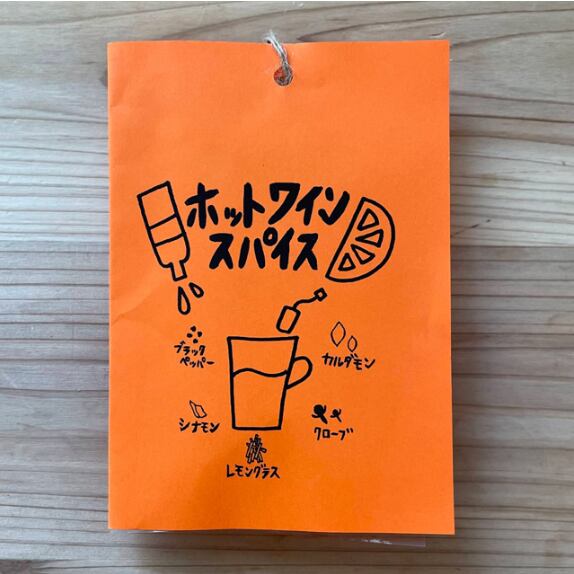 ホットワイン
スパイス
ブラック
ペッパー
カルダモン
シナモン
クローブ
レモングラス